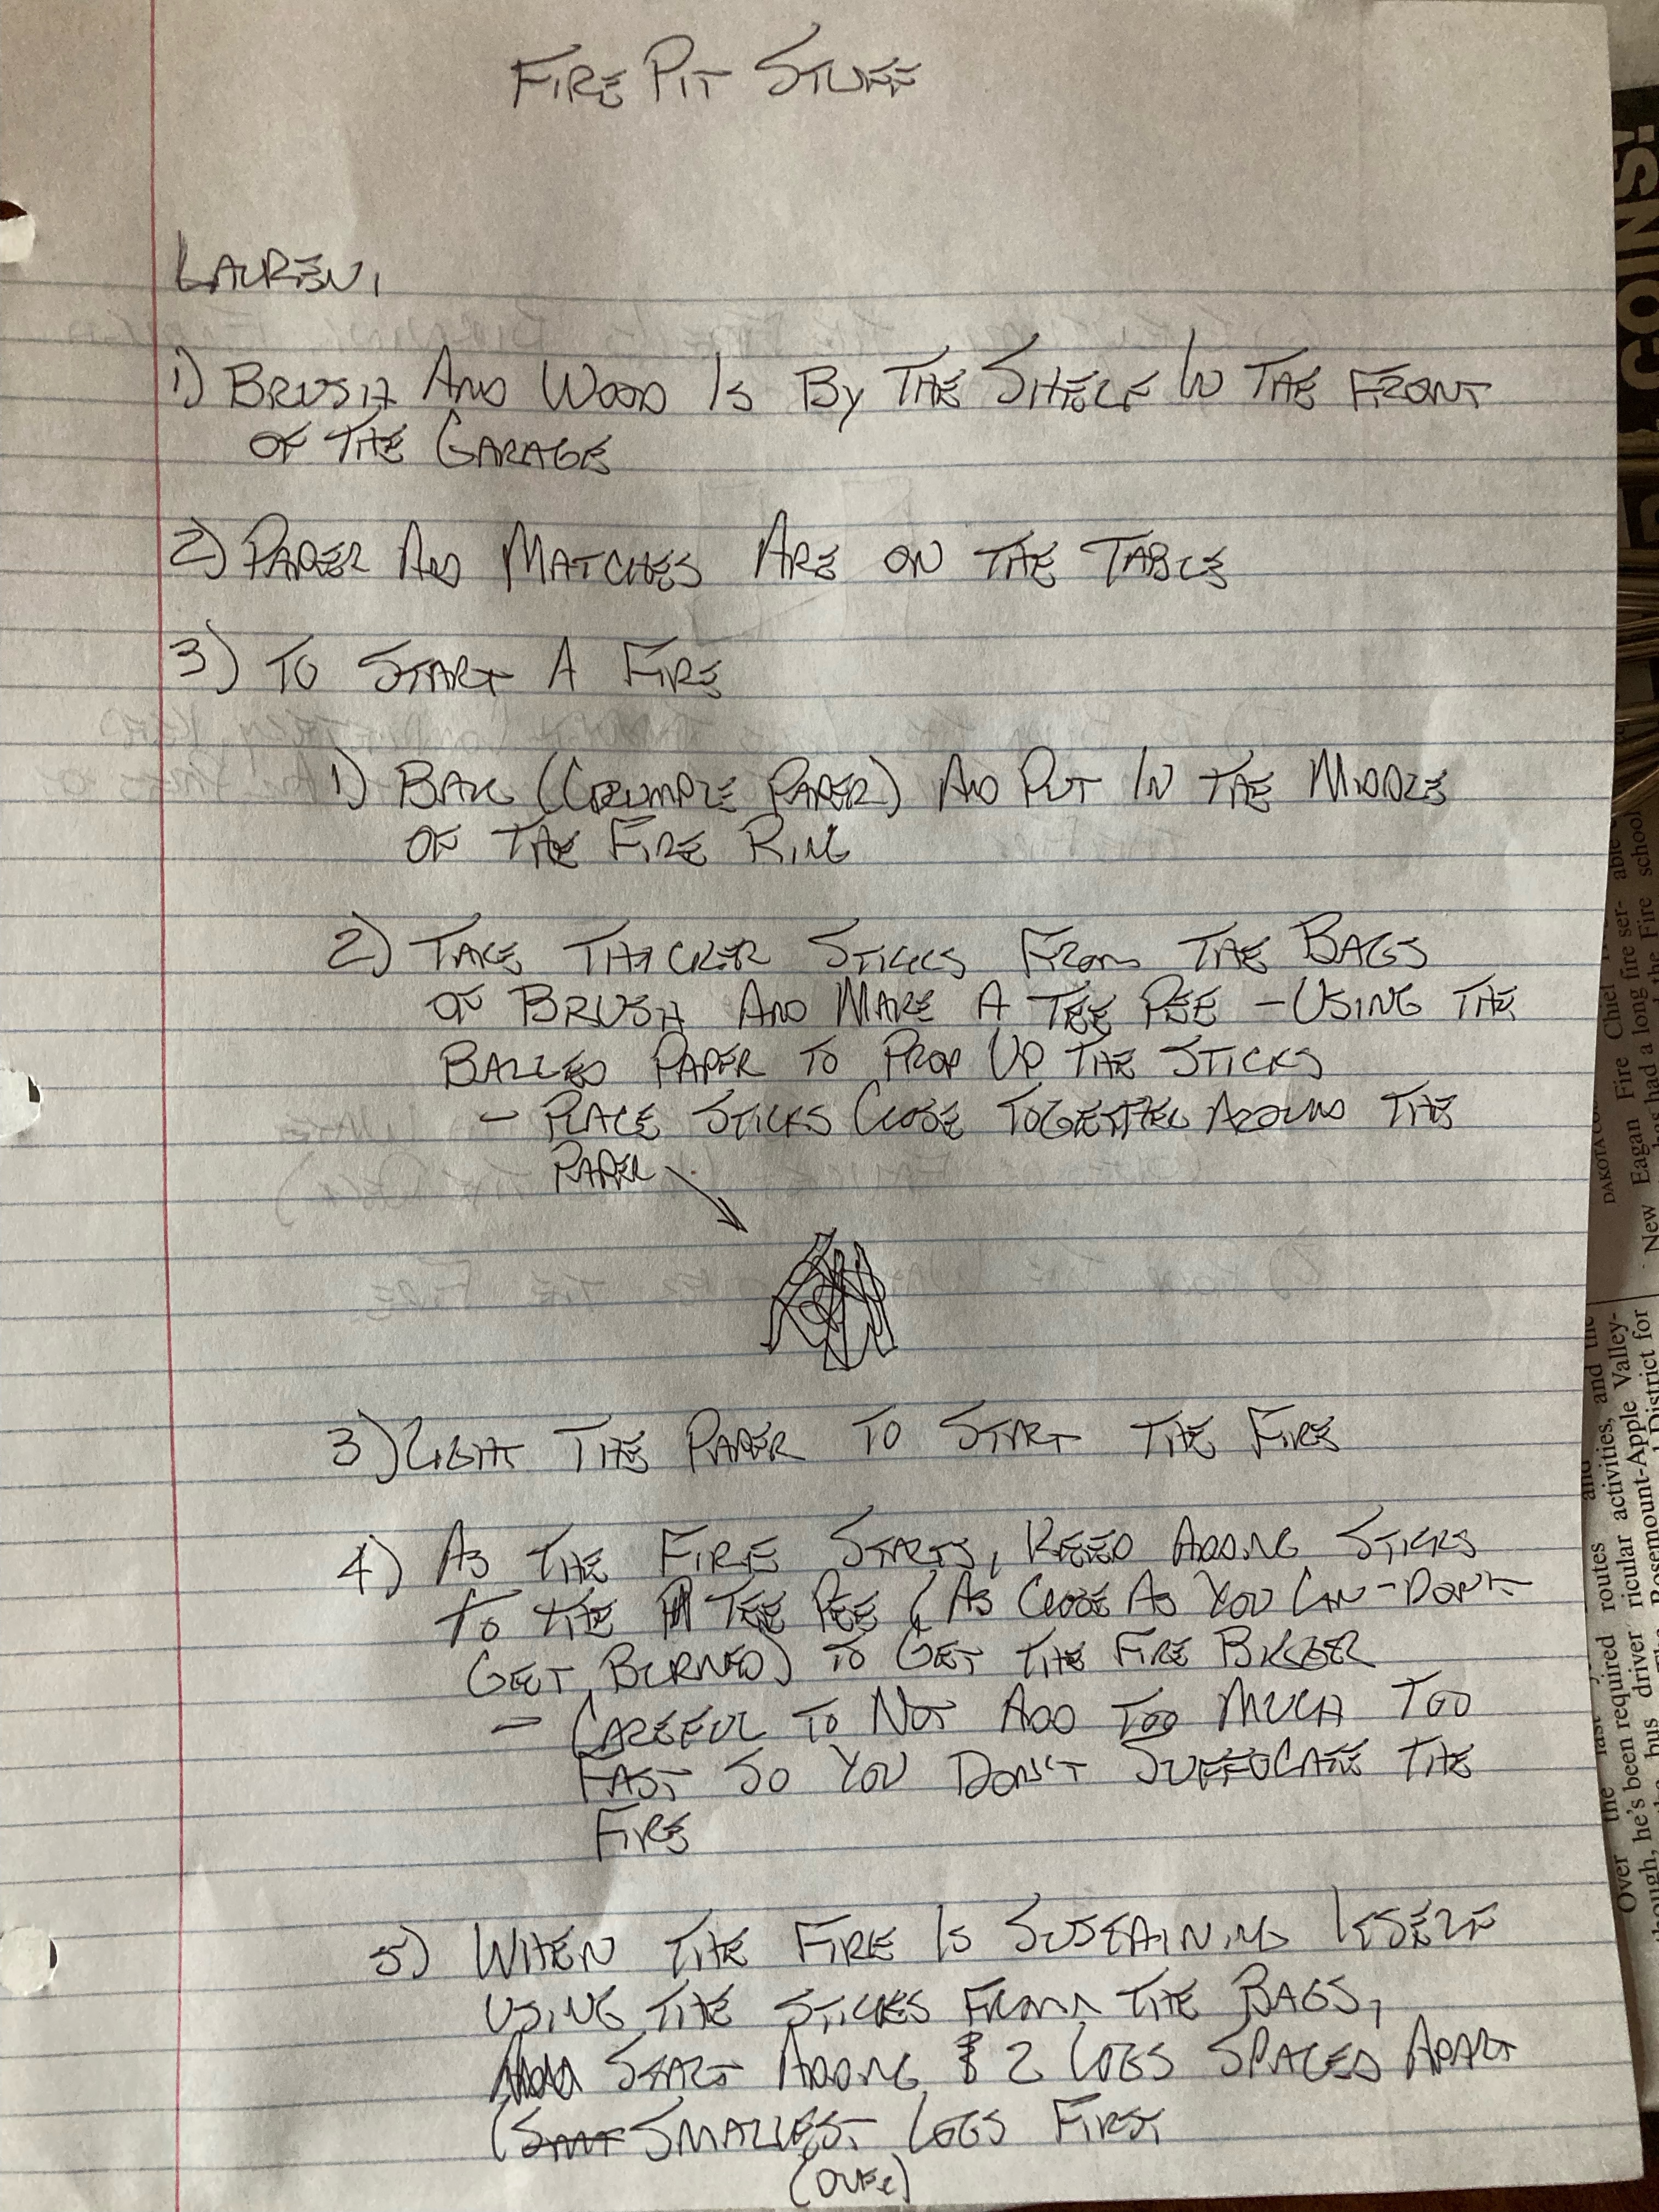 FIRE PIT STUFF
LAUREN,
1) BRUSH AND WOOD IS BY THE SHELF IN THE FRONT
OF THE GARAGE
2) PAPER AND MATCHES ARE ON THE TABLE
3) TO START A FIRE
1) BALL (CRUMPLE PAPER) AND PUT IN THE MIDDLE
OF THE FIRE RING
2) TAKE THICKER STICKS FROM THE BAGS
OF BRUSH AND MAKE A TEE PEE - USING THE
BALLED PAPER TO PROP UP THE STICKS
- PLACE STICKS CLOSE TOGETHER AROUND THE
PAPER
3) LIGHT THE PAPER TO START THE FIRE
4) AS THE FIRE STARTS, KEEP ADDING STICKS
TO THE TEE PEE (AS CLOSE AS YOU CAN - DON'T
GET BURNED) TO GET THE FIRE BIGGER
- CAREFUL TO NOT ADD TOO MUCH TOO
FAST SO YOU DON'T SUFFOCATE THE
FIRE
5) WHEN THE FIRE IS SUSTAINING ITSELF
USING THE STICKS FROM THE BAGS,
START ADDING 2 LOGS SPACED APART
(SMALLEST LOGS FIRST
(OVER)
COINS!
DAKOTA CO
New Eagan Fire Chief
has had a long fire ser- able
the Fire school
Over the last routes and
though, he's been required ricular activities, and the
bus driver Rosemount-Apple Valley-
The District for